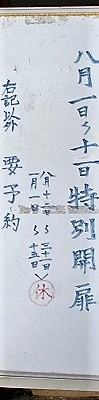 八月一日〜十一日特別開扉
八月十二日〜三十一日
一月一日〜十五日
休
右記外 要予約